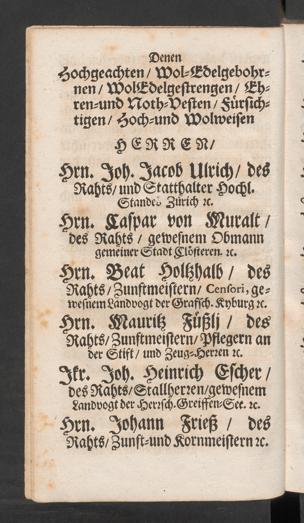 Denen
Hochgeachten/ Wol-Edelgebohr-
nen/ WolEdelgestrengen/ Eh-
ren-und Noth-Vesten/ Fürsich-
tigen/ Hoch-und Wolweisen
HERREN/
Hrn. Joh. Jacob Ulrich/ des
Rahts/ und Statthalter Hochl.
Standes Zürich ꝛc.
Hrn. Caspar von Muralt/
des Rahts/ gewesnem Obmann
gemeiner Stadt Clösteren. ꝛc.
Hrn. Beat Holtzhalb/ des
Rahts/ Zunftmeistern/ Censori, ge-
wesnem Landvogt der Grafsch. Kyburg ꝛc.
Hrn. Mauritz Füßlj/ des
Rahts/ Zunftmeistern/ Pflegern an
der Stift/ und Zeug-Herren ꝛc.
Jkr. Joh. Heinrich Escher/
des Rahts/ Stallherren/ gewesnem
Landvogt der Herrsch. Greiffen-See. ꝛc.
Hrn. Johann Frieß/ des
Rahts/ Zunft-und Kornmeistern ꝛc.